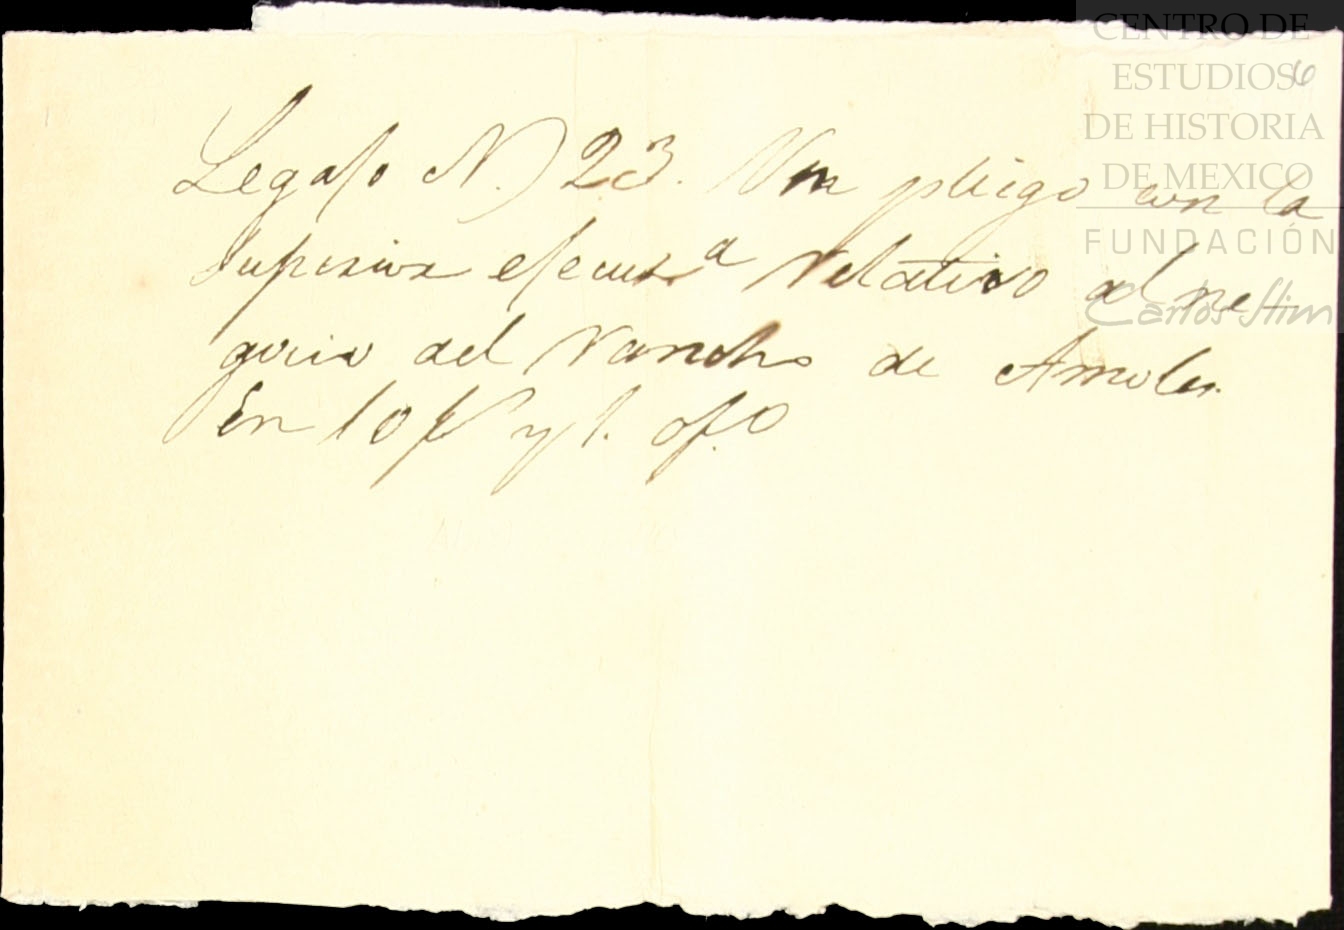 CENTRO DE
ESTUDIOS
DE HISTORIA
DE MEXICO
FUNDACIÓN
Carlos Slim
6
Legajo N. 23. Un pliego con la
Superior ejecut.a relativo al ne
gocio del rancho de Amoles.
En 10 f y 1. of.o